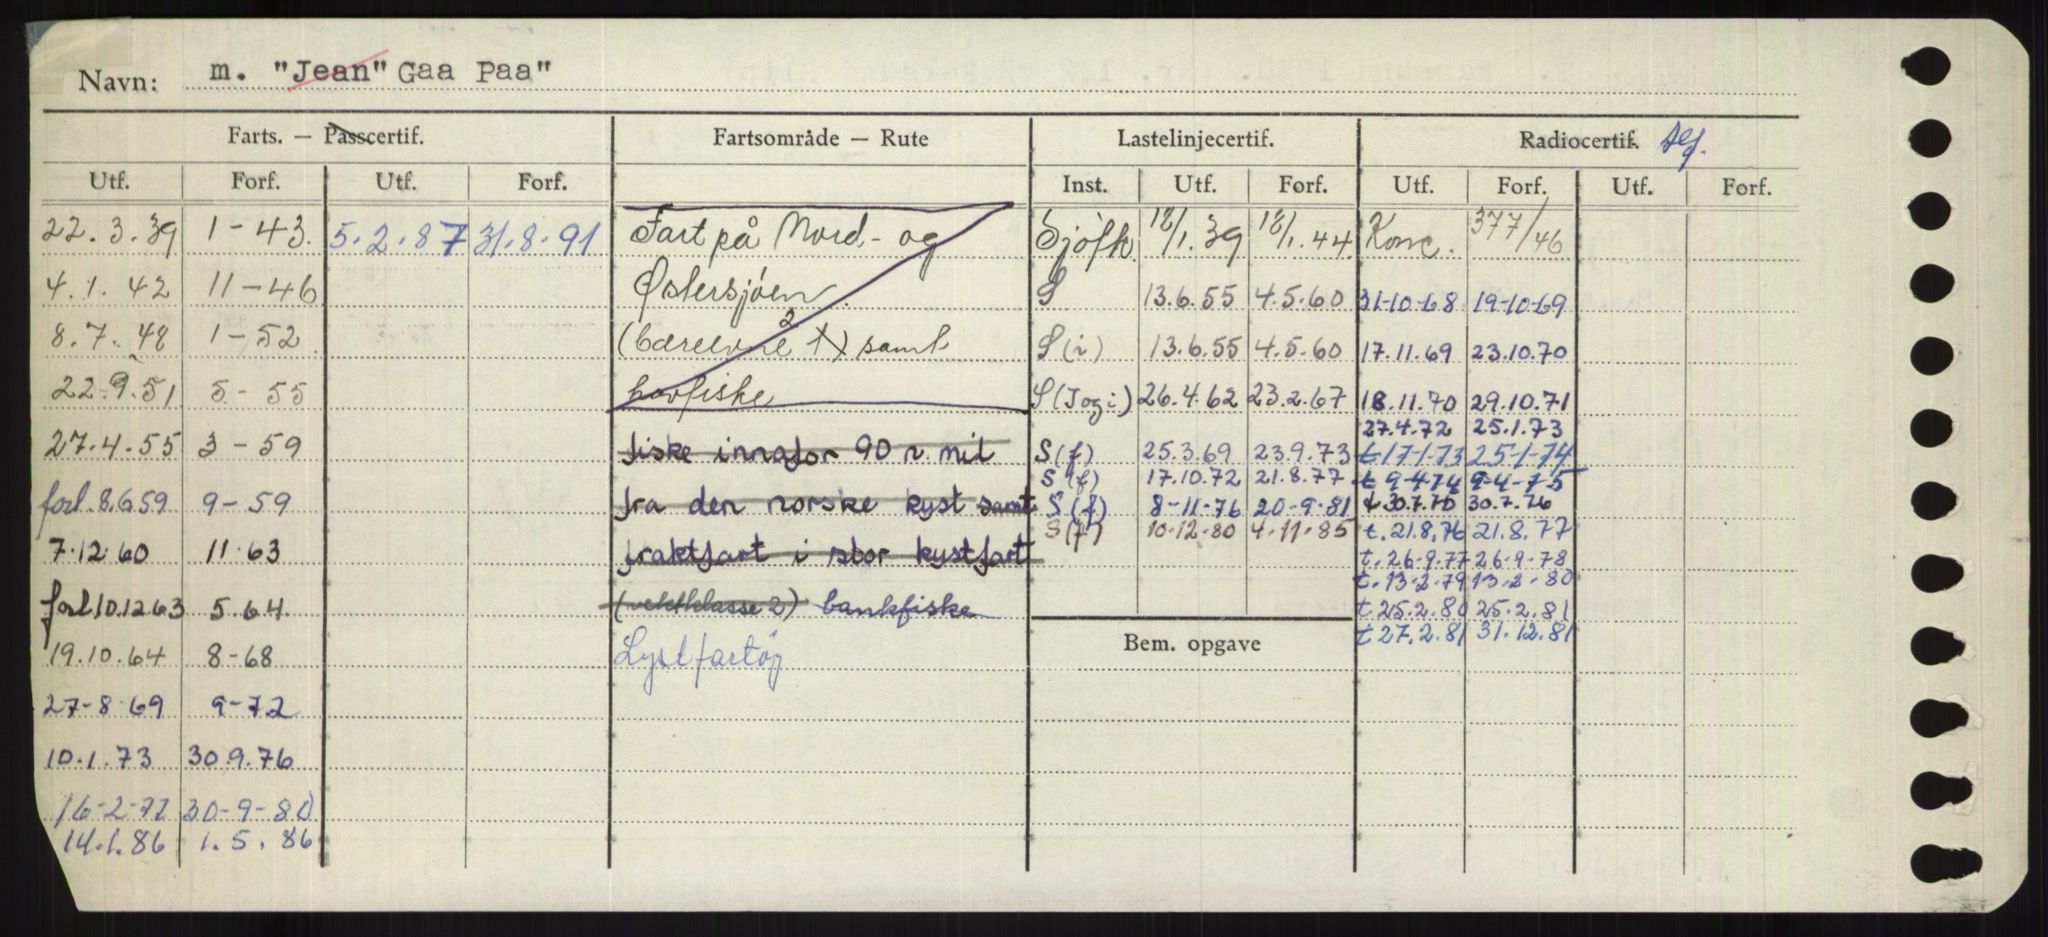 Navn: m. "Jean" Gaa Paa"
Farts. — Passcertif. Fartsområde — Rute Lastelinjecertif. Radiocertif.
Utf. Forf. Utf. Forf. Inst. Utf. Forf. Utf. Forf. Utf. Forf.
22.3.39 1-43. 5.2.87 31.8.91 Fart på Nord- og Sjøfk 18/1.39 18/1.44 Konc. 377/46
4.1.42 11-46 Østersjøen S 13.6.55 4.5.60 31-10-68 19-10-69
8.7.48 1-52 (bæreevne 2 t) samt S(i) 13.6.55 4.5.60 17.11.69 23.10.70
22.9.51 5-55 havfiske S(Iogi) 26.4.62 23.2.67 18.11.70 29.10.71
27.4.72 25.1.73
27.4.55 3-59 fiske innafor 90 n. mil S(f) 25.3.69 23.9.73 t 17.1.73 25-1-74
S(f) 17.10.72 21.8.77 t 9-4-74 9-4-75
forl. 8.6.59 9-59 fra den norske kyst samt S(f) 8-11-76 20-9-81 t 30.7.75 30.7.76
S(f) 10-12-80 4-11-85 t. 21.8.76 21.8.77
7.12.60 11.63 fraktfart i stor kystfart t. 26.9.77 26-9-78
t. 13-2-79 13-2-80
forl 10.12.63 5.64 (vektklasse 2) bankfiske t 25.2.80 25.2.81
t 27.2.81 31.12.81
19.10.64 8-68 Lystfartøy Bem. opgave
27-8-69 9-72
10.1.73 30.9.76
16-2-77 30-9-80
14.1.86 1.5.86